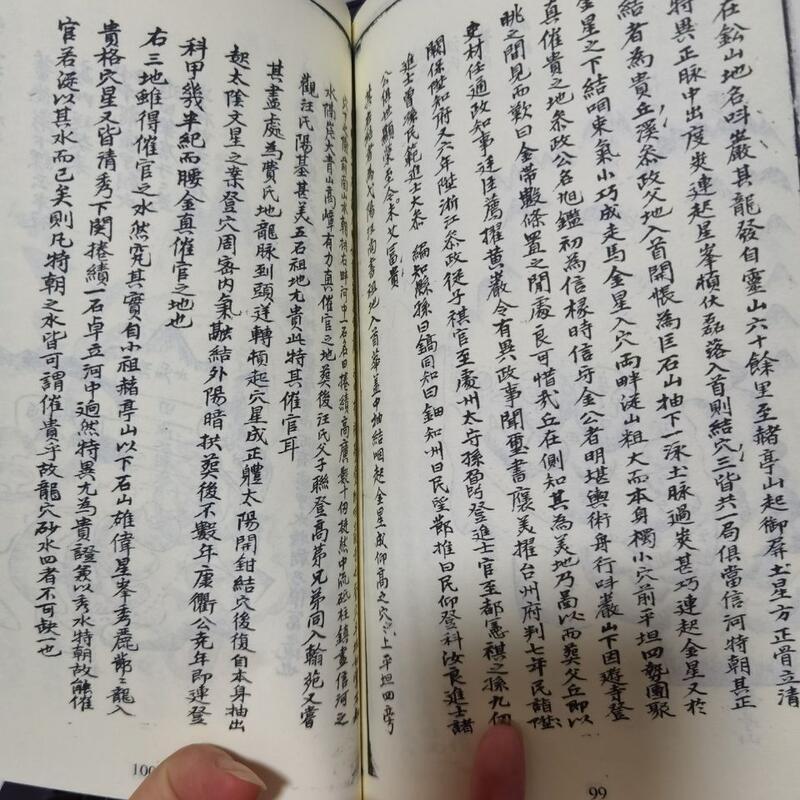 在鉛山地名呌巖其龍發自靈山六十餘里至赭亭山起御屏土星方正骨立清
特異正脉中出度峽連起星峯頓伏磊落入首則結穴三皆共一局俱當信河特朝其正
結者為貴丘溪叅政父地入首開帳為巨石山抽下一泳土脉過峽甚巧連起金星又於
金星之下結咽束氣小巧成走馬金星入穴両畔從山粗大而本身獨小穴前平坦四勢團聚
真催貴之地叅政公名旭鑑初為信椽時信守金公者明堪輿術舟行呌巖山下因遊寺登
眺之間見而歎曰金帶數條置之閒處良可惜哉丘在側知其為美地乃啚以而葬父丘即以
吏材任通政知事逹臣薦擢黄巖令有異政事聞璽書褒美擢台州府判七年民詣陞
關係陞知府又六年陞浙江叅政從子祺官至處州太守孫登進士官至都憲祺之孫九
進士曾孫民範進士大叅 編知縣孫曰鎬同知曰鈿知州曰民望節推曰民仰登科汝良進士諸
公俱世顯榮至今未艾富貴
入首華盖中抽結咽起金星成仰高之穴上平坦四旁
水前面山水朝右畔河中一石名曰捲績高廣數十仞挺然中流砥柱鎮盡信河之
觀汪氏陽基甚美五石祖地尤貴此特其催官耳
其盡處為費氏地龍脉到頭逆轉頓起穴星成正體太陽開鉗結穴後復自本身抽出
起太陰文星之案登穴周宻内氣融結外陽暗拱葬後不數年康衢公堯年即連登
科甲幾半紀而腰金真催官之地也
右三地雖得催官之水然究其實自小祖赭亭山以下石山雄偉星峯秀麗節二龍入
貴格穴星又皆清秀下関捲績一石卓立河中逈然特異尤為貴證兼以秀水特朝故能催
官若泛以其水而已矣則凢特朝之水皆可謂催貴乎故龍穴砂水四者不可缺一也
100
99